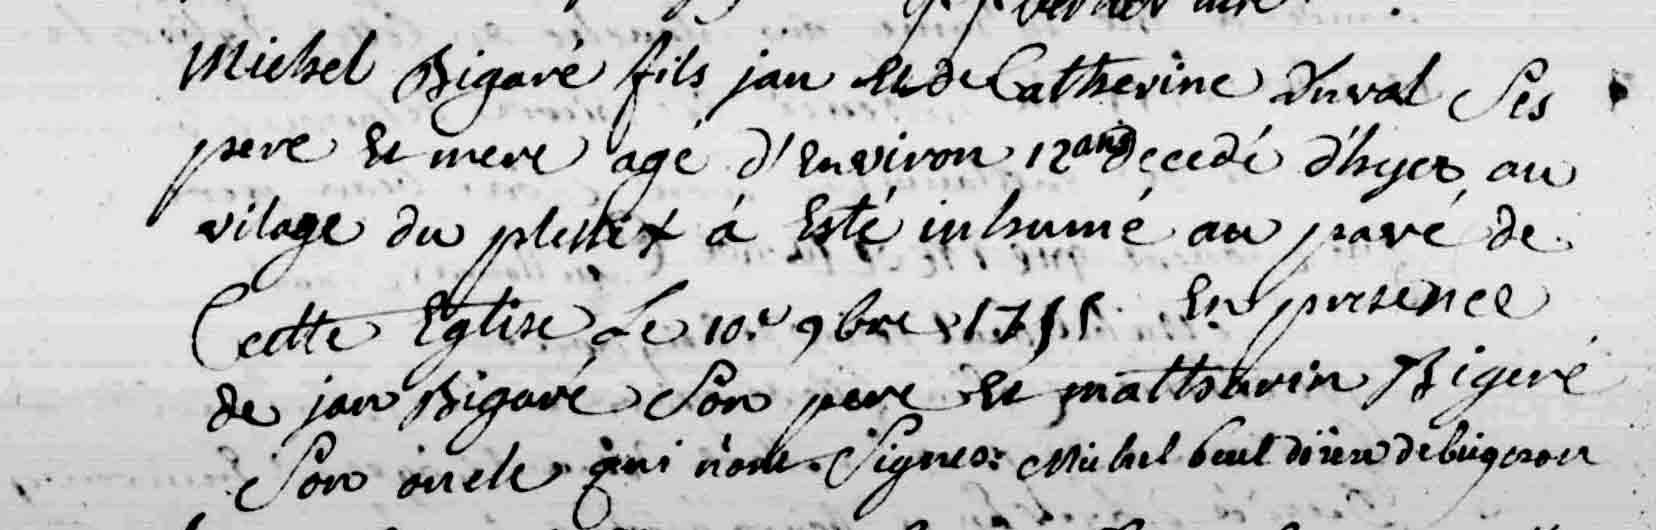 Michel Bigaré fils jan et de Catherine Duval Ses
pere et mere agé d'environ 12 ans decedé d'hyer au
vilage du plessix á Esté inhumé au pavé de
Cette Eglise Le 10.e 9bre 1755 En presence
de jan Bigaré Son pere et mathurin Bigeré
Son oncle qui n'ont Signes: Michel